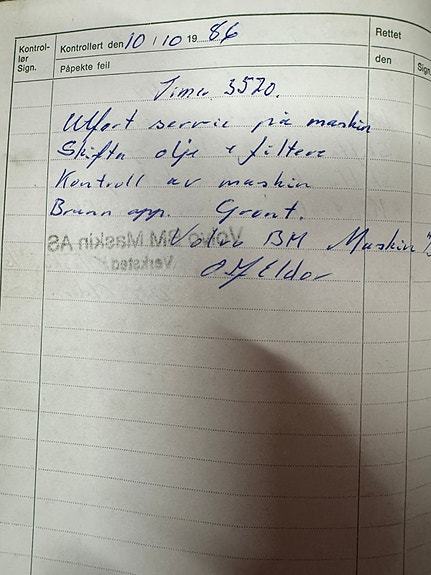 Kontrol-
lør
Sign.
Kontrollert den 10 / 10 19 86
Påpekte feil
Rettet
den
Sign.
Timer 3520.
Utført service på maskin
Skifta olje + filtere
Kontroll av maskin
Grønt.
Volvo BM Maskin A/S
Volvo BM Maskin AS
Verksted